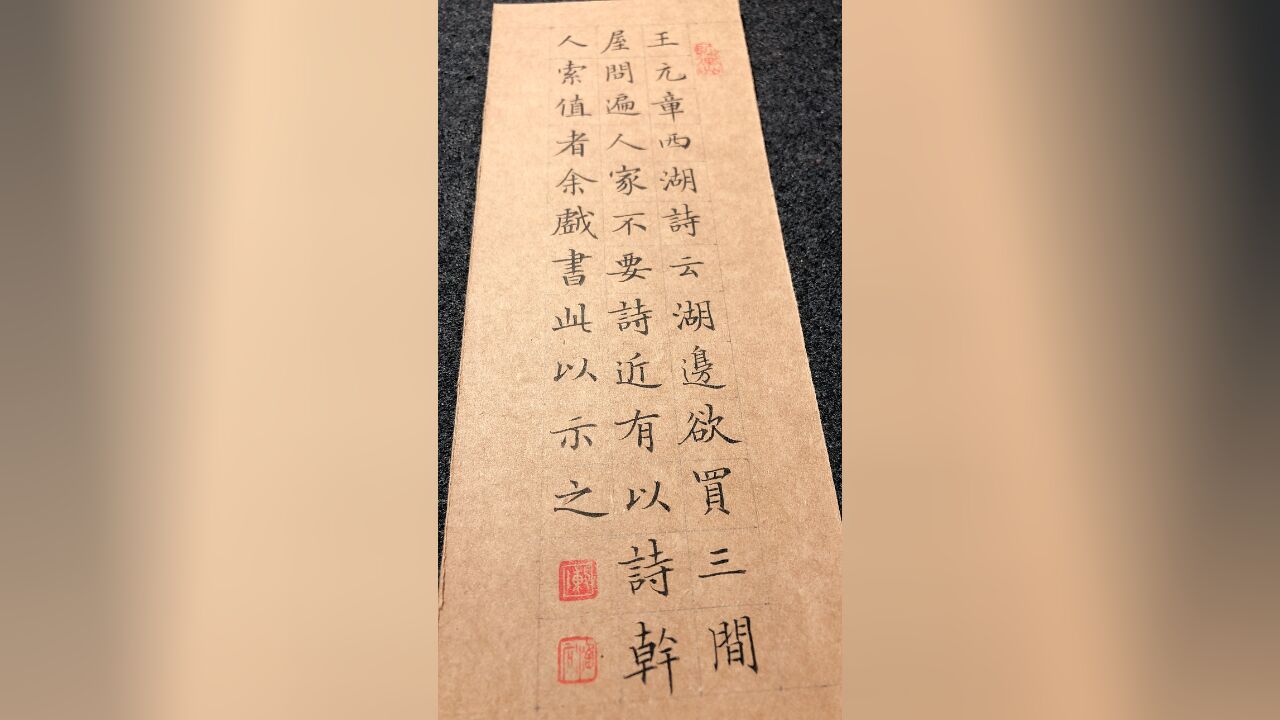 王元章西湖詩云湖邊欲買三間
屋問遍人家不要詩近有以詩幹
人索值者余戲書此以示之